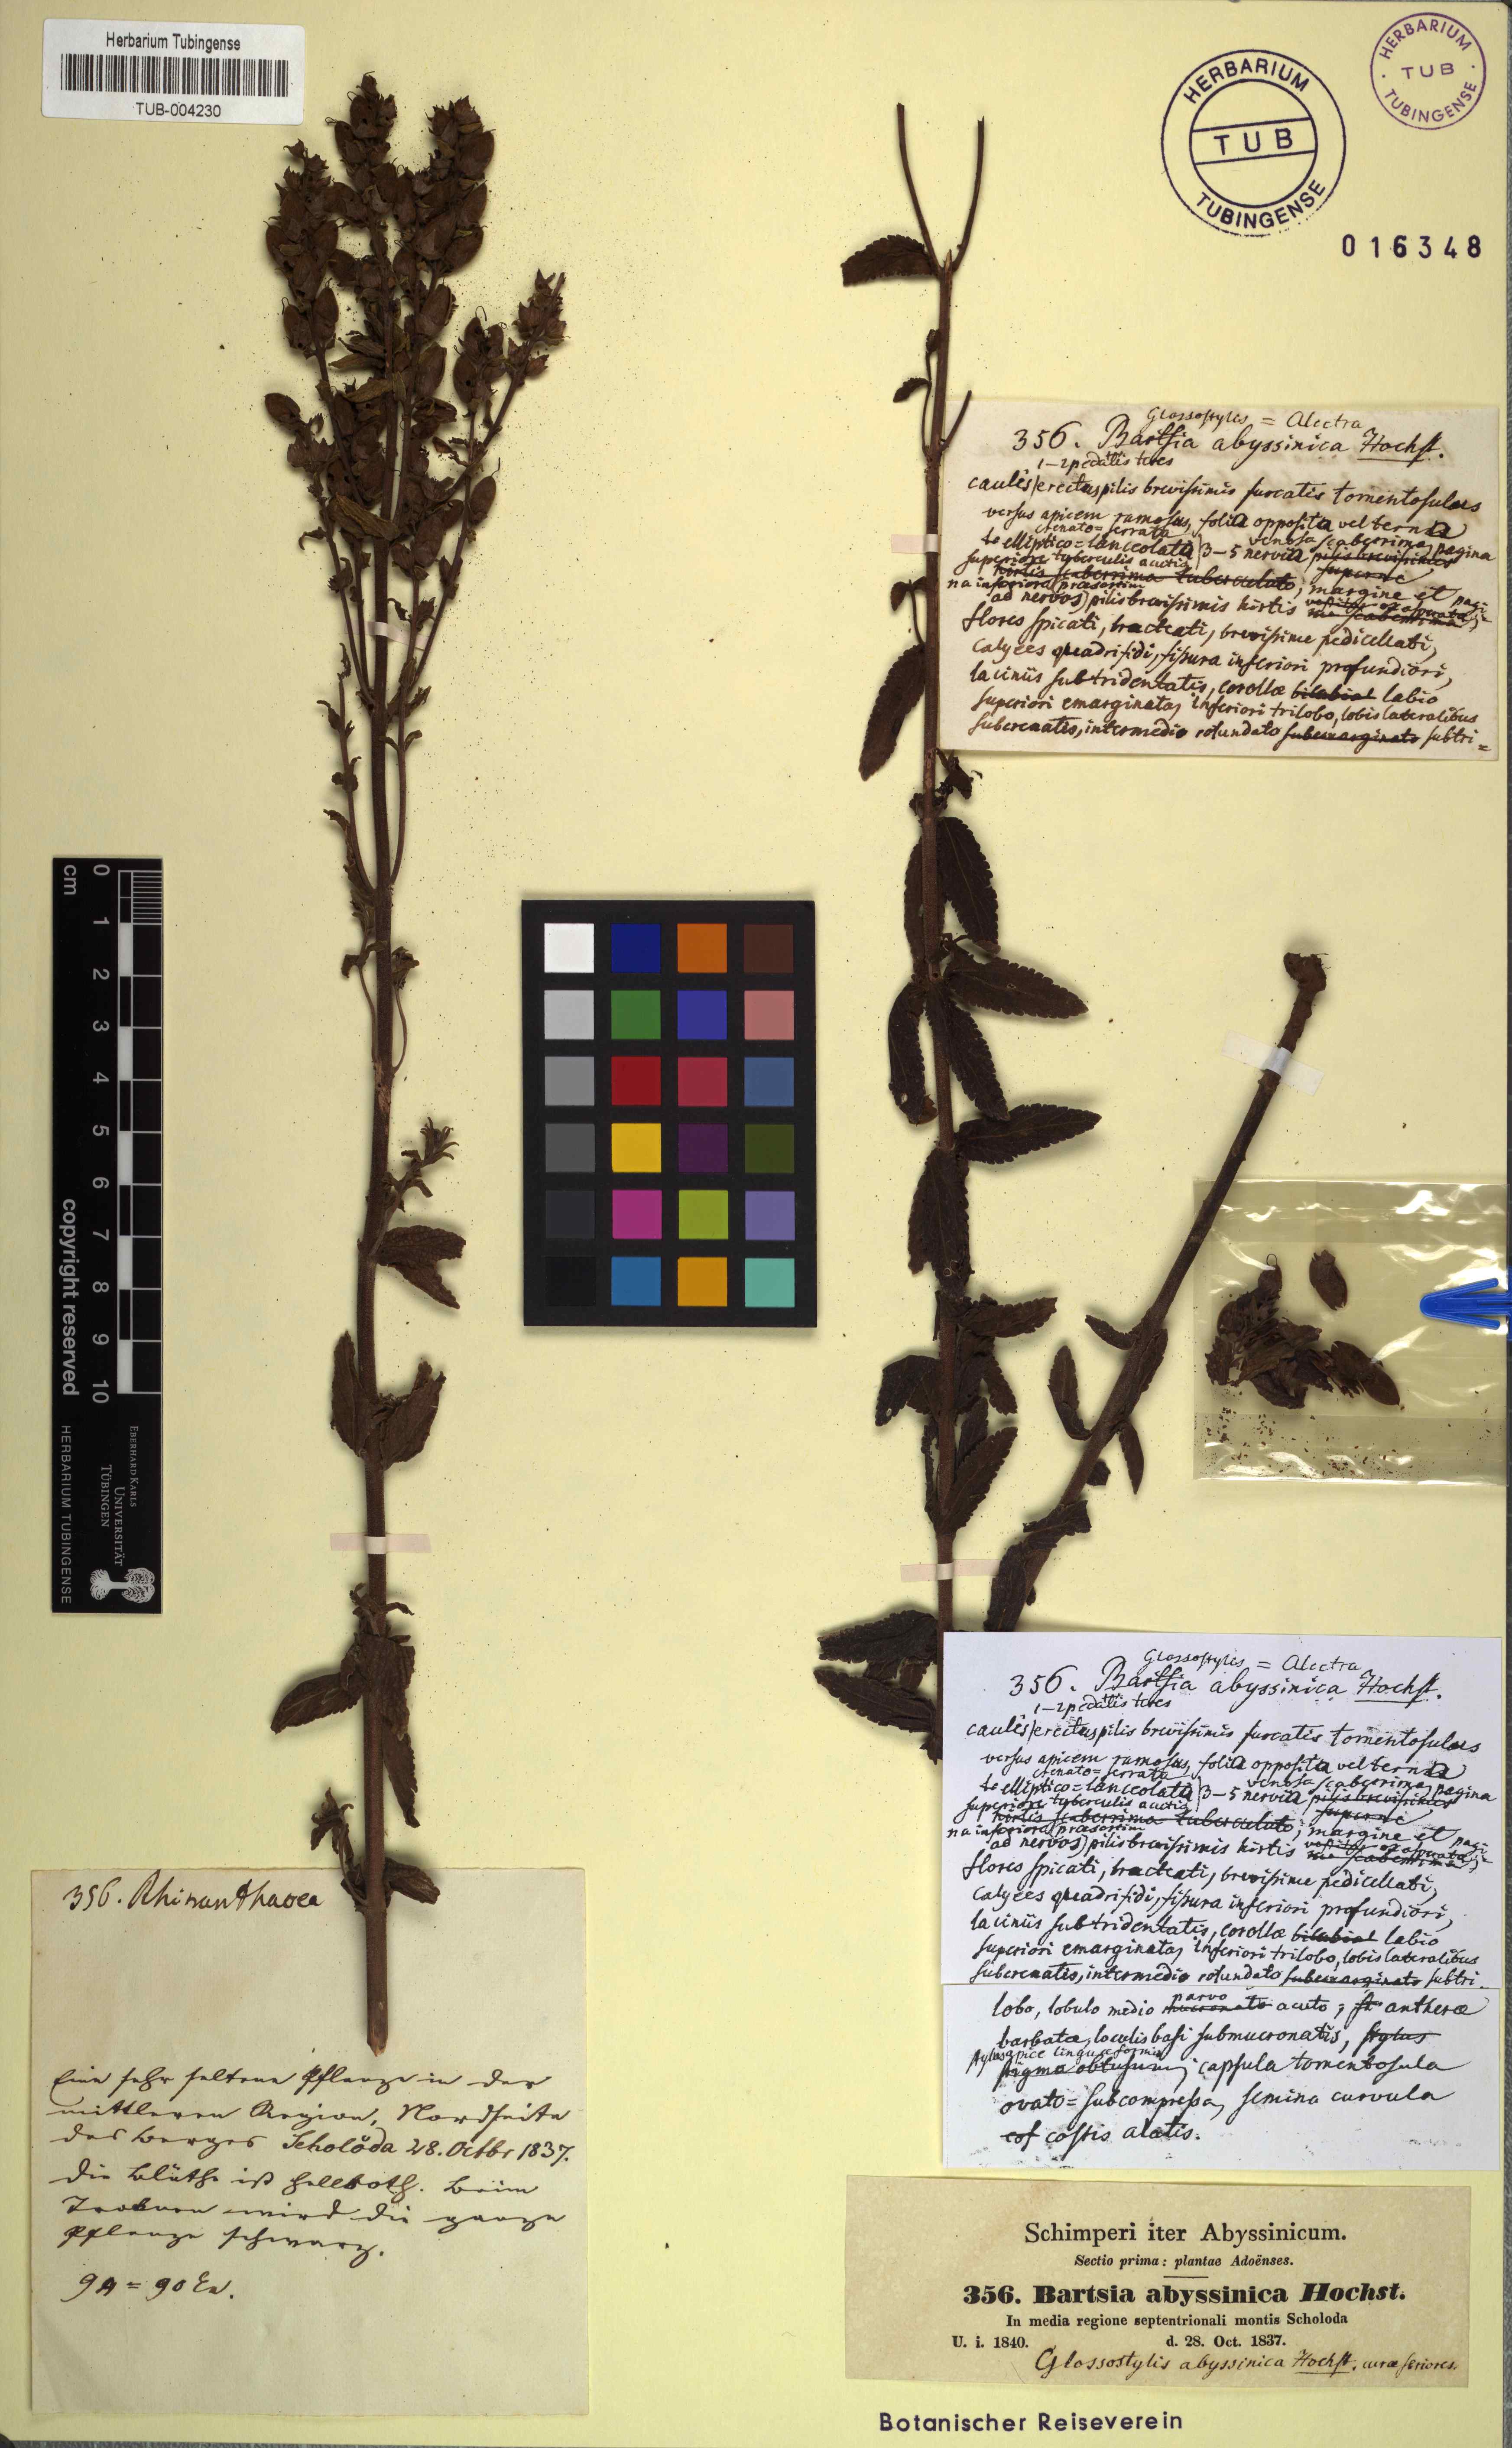 Herbarium Tubingense
TUB-004230
HERBARIUM
TUB
TUBINGENSE
HERBARIUM
TUB
TUBINGENSE
016348
Glossostylis = Alectra
356. Bartsia abyssinica Hochst.
1-2pedalis teres
caulis erectus pilis brevissimis furcatis tomentosulus
versus apicem ramosus, folia opposita vel terna
crenato=serrata venosa scaberrima, pagina
elliptico=lanceolata 3-5 nervia pilis brevissimis
superiore tuberculis acutis superne
hirtis scaberrima tuberculato, margine et pagi-
na inferiora (præsertim
ad nervos) pilis brevissimis hirtis
flores spicati, bracteati, brevissime pedicellati,
calyces quadrifidi, fissura inferiori profundiori,
laciniis subtridentatis, corollæ bilabiat labio
superiori emarginato, inferiori trilobo, lobis lateralibus
subcrenatis, intermedio rotundato submarginato subtri=
cm
0 1 2 3 4 5 6 7 8 9 10
copyright reserved
HERBARIUM TUBINGENSE
EBERHARD KARLS
UNIVERSITÄT
TÜBINGEN
Glossostylis = Alectra
356. Bartsia abyssinica Hochst.
1-2pedalis teres
caulis erectus pilis brevissimis furcatis tomentosulus
versus apicem ramosus, folia opposita vel terna
crenato=serrata venosa scaberrima, pagina
elliptico=lanceolata 3-5 nervia pilis brevissimis
superiore tuberculis acutis superne
hirtis scaberrima tuberculato, margine et pagi-
na inferiora (præsertim
ad nervos) pilis brevissimis hirtis
flores spicati, bracteati, brevissime pedicellati,
calyces quadrifidi, fissura inferiori profundiori,
laciniis subtridentatis, corollæ bilabiat labio
superiori emarginato, inferiori trilobo, lobis lateralibus
subcrenatis, intermedio rotundato submarginato subtri-
parvo
lobo, lobulo medio mucronato acuto; antheræ
barbatæ, loculis basi submucronatis, stylus
stylus apice linguæformi
stigma obtusum; capsula tomentosula
ovato=subcompressa, semina curvula
cof costis alatis.
356. Rhinanthacea
Eine sehr seltene Pflanze in der
mittleren Region, Nordseite
des Berges Scholóda 28. Octbr 1837.
die Blüthe ist hellroth. Beim
Trocknen wird die ganze
Pflanze schwarz.
Schimperi iter Abyssinicum.
Sectio prima: plantae Adoënses.
356. Bartsia abyssinica Hochst.
In media regione septentrionali montis Scholoda
U. i. 1840. d. 28. Oct. 1837.
Glossostylis abyssinica Hochst. curæ seriores.
Botanischer Reiseverein